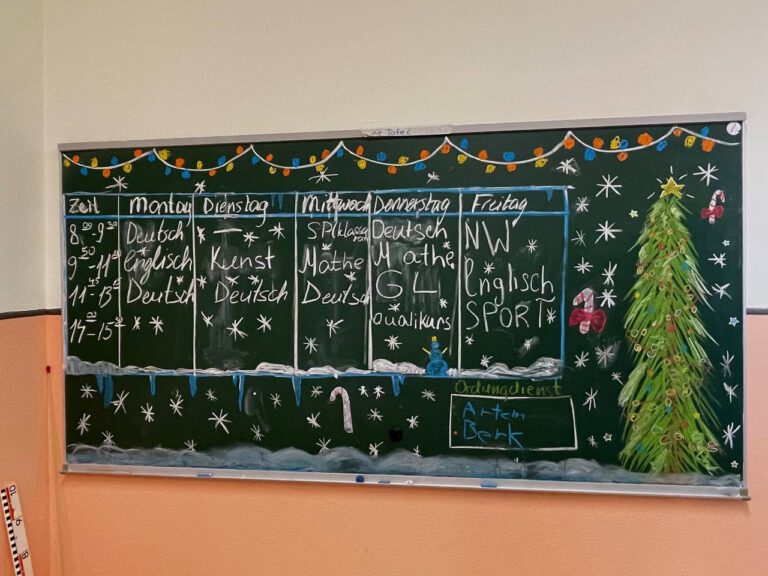 Zeit Montag Dienstag Mittwoch Donnerstag Freitag
8 00 - 9 30 Deutsch — SP (Klassen Deutsch NW
9 50 - 11 20 Englisch Kunst Mathe Mathe Englisch
11 45 - 13 15 Deutsch Deutsch Deutsch GL SPORT
14 00 - 15 30 Qualikurs
Ordungdienst
Artem
Berk